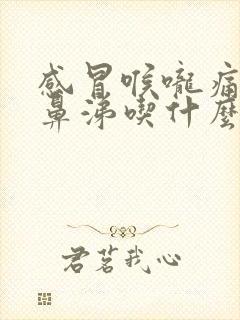 感冒喉嚨痛
鼻涕喫什麼
君茗我心